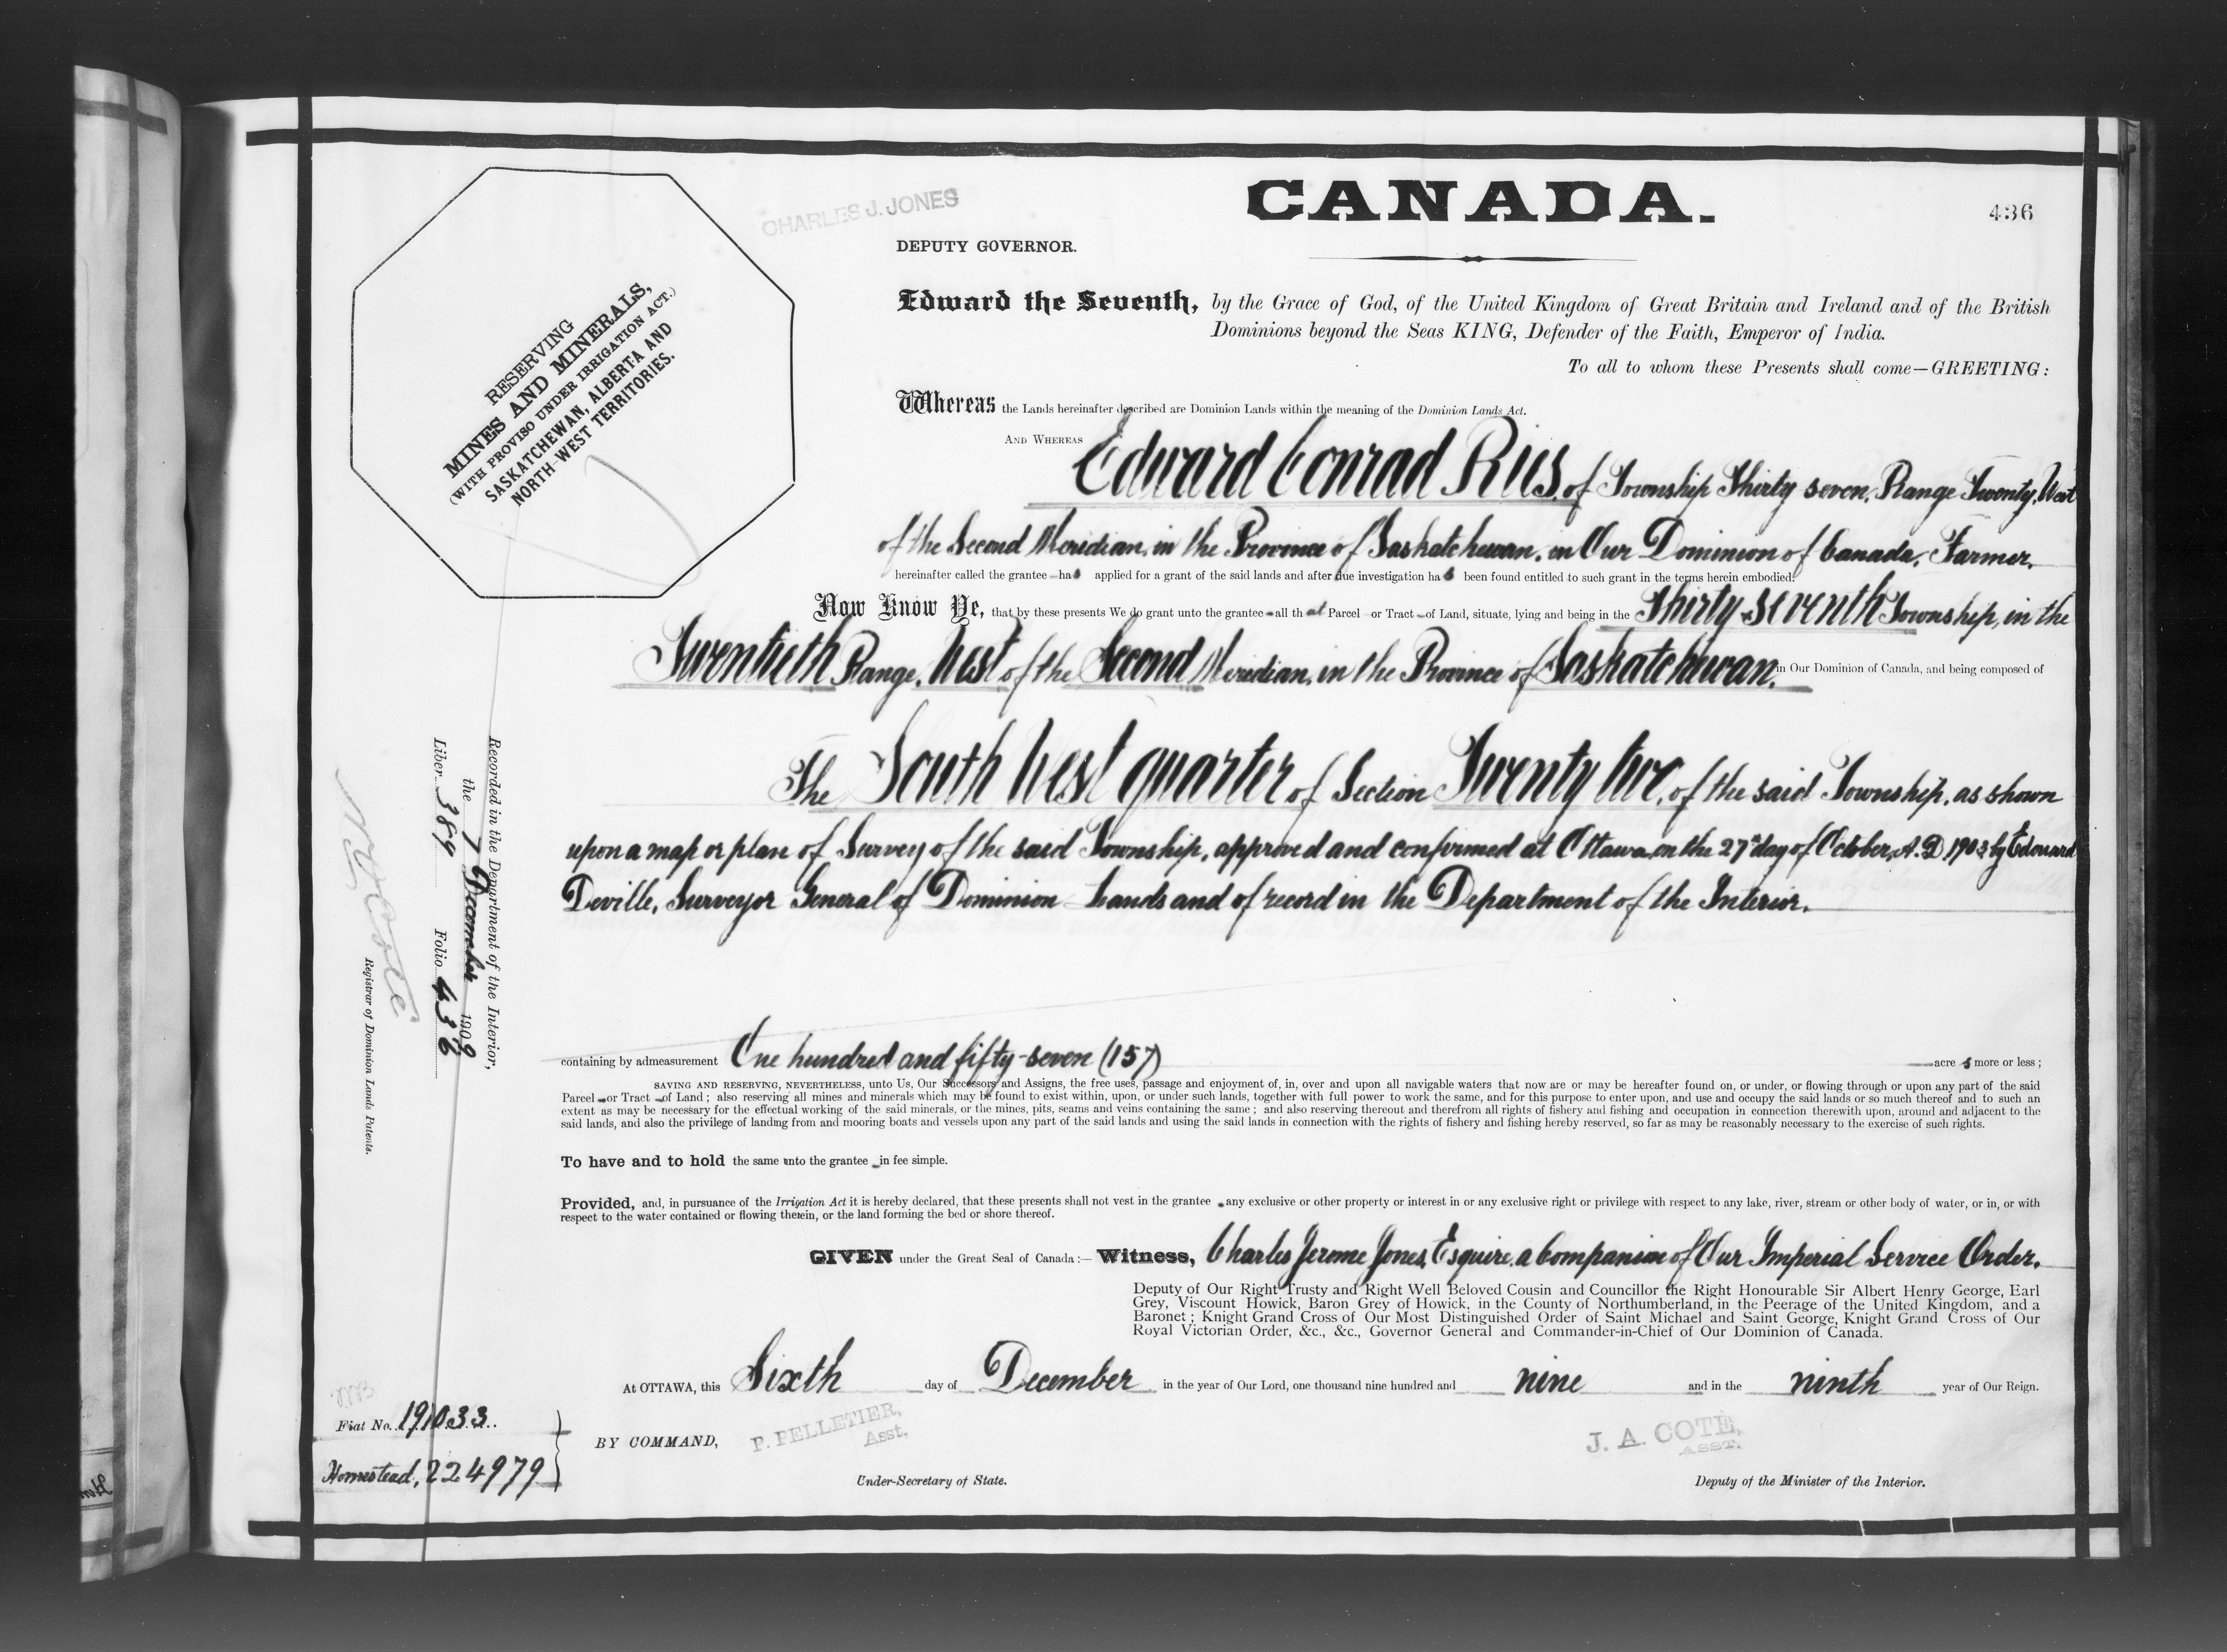 CHARLES J. JONES
CANADA.
436
DEPUTY GOVERNOR.
RESERVING
MINES AND MINERALS,
(WITH PROVISO UNDER IRRIGATION ACT.)
SASKATCHEWAN, ALBERTA AND
NORTH-WEST TERRITORIES.
Edward the Seventh, by the Grace of God, of the United Kingdom of Great Britain and Ireland and of the British
Dominions beyond the Seas KING, Defender of the Faith, Emperor of India.
To all to whom these Presents shall come—GREETING:
Whereas the Lands hereinafter described are Dominion Lands within the meaning of the Dominion Lands Act.
AND WHEREAS Edward Conrad Riis, of Township Thirty seven, Range Twenty, West
of the Second Meridian, in the Province of Saskatchewan, in Our Dominion of Canada, Farmer,
hereinafter called the grantee has applied for a grant of the said lands and after due investigation has been found entitled to such grant in the terms herein embodied:
Now Know Ye, that by these presents We do grant unto the grantee all that Parcel or Tract of Land, situate, lying and being in the Thirty-seventh Township, in the
Twentieth Range, West of the Second Meridian, in the Province of Saskatchewan, in Our Dominion of Canada, and being composed of
The South West quarter of Section Twenty two, of the said Township, as shown
upon a map or plan of Survey of the said Township, approved and confirmed at Ottawa, on the 27th day of October, A.D. 1903 by Edouard
Deville, Surveyor General of Dominion Lands and of record in the Department of the Interior.
containing by admeasurement One hundred and fifty-seven (157) acres more or less;
SAVING AND RESERVING, NEVERTHELESS, unto Us, Our Successors and Assigns, the free uses, passage and enjoyment of, in, over and upon all navigable waters that now are or may be hereafter found on, or under, or flowing through or upon any part of the said
Parcel or Tract of Land; also reserving all mines and minerals which may be found to exist within, upon, or under such lands, together with full power to work the same, and for this purpose to enter upon, and use and occupy the said lands or so much thereof and to such an
extent as may be necessary for the effectual working of the said minerals, or the mines, pits, seams and veins containing the same; and also reserving thereout and therefrom all rights of fishery and fishing and occupation in connection therewith upon, around and adjacent to the
said lands, and also the privilege of landing from and mooring boats and vessels upon any part of the said lands and using the said lands in connection with the rights of fishery and fishing hereby reserved, so far as may be reasonably necessary to the exercise of such rights.
To have and to hold the same unto the grantee in fee simple.
Provided, and, in pursuance of the Irrigation Act it is hereby declared, that these presents shall not vest in the grantee any exclusive or other property or interest in or any exclusive right or privilege with respect to any lake, river, stream or other body of water, or in, or with
respect to the water contained or flowing therein, or the land forming the bed or shore thereof.
GIVEN under the Great Seal of Canada:— Witness, Charles Jerome Jones, Esquire, a Companion of Our Imperial Service Order,
Deputy of Our Right Trusty and Right Well Beloved Cousin and Councillor the Right Honourable Sir Albert Henry George, Earl
Grey, Viscount Howick, Baron Grey of Howick, in the County of Northumberland, in the Peerage of the United Kingdom, and a
Baronet; Knight Grand Cross of Our Most Distinguished Order of Saint Michael and Saint George, Knight Grand Cross of Our
Royal Victorian Order, &c., &c., Governor General and Commander-in-Chief of Our Dominion of Canada.
At OTTAWA, this Sixth day of December in the year of Our Lord, one thousand nine hundred and nine and in the ninth year of Our Reign.
BY COMMAND,
P. PELLETIER,
Asst.
Under-Secretary of State.
J. A. COTE,
ASST.
Deputy of the Minister of the Interior.
Recorded in the Department of the Interior,
the 7 December 1909
Liber 389 Folio 436
N O Coté
Registrar of Dominion Lands Patents.
Fiat No. 191033.
Homestead, 224979